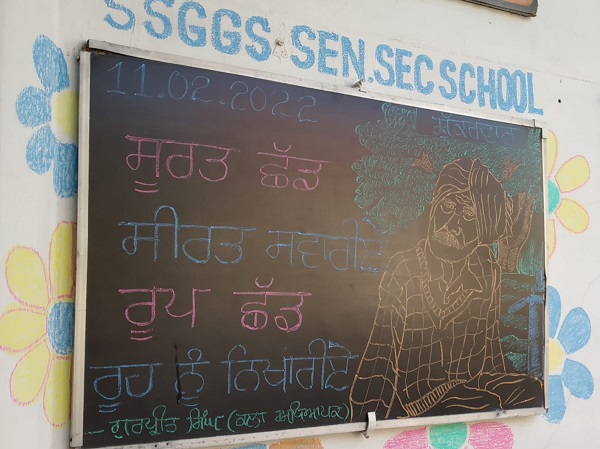 SSGGS SEN.SEC SCHOOL
11.02.2022
ਸੂਰਤ ਛੱਡ
ਸੀਰਤ ਸਵਾਰੀਏ
ਰੂਪ ਛੱਡ
ਰੂਹ ਨੂੰ ਨਿਖਾਰੀਏ
- ਗੁਰਪ੍ਰੀਤ ਸਿੰਘ (ਕਲਾ ਅਧਿਆਪਕ)